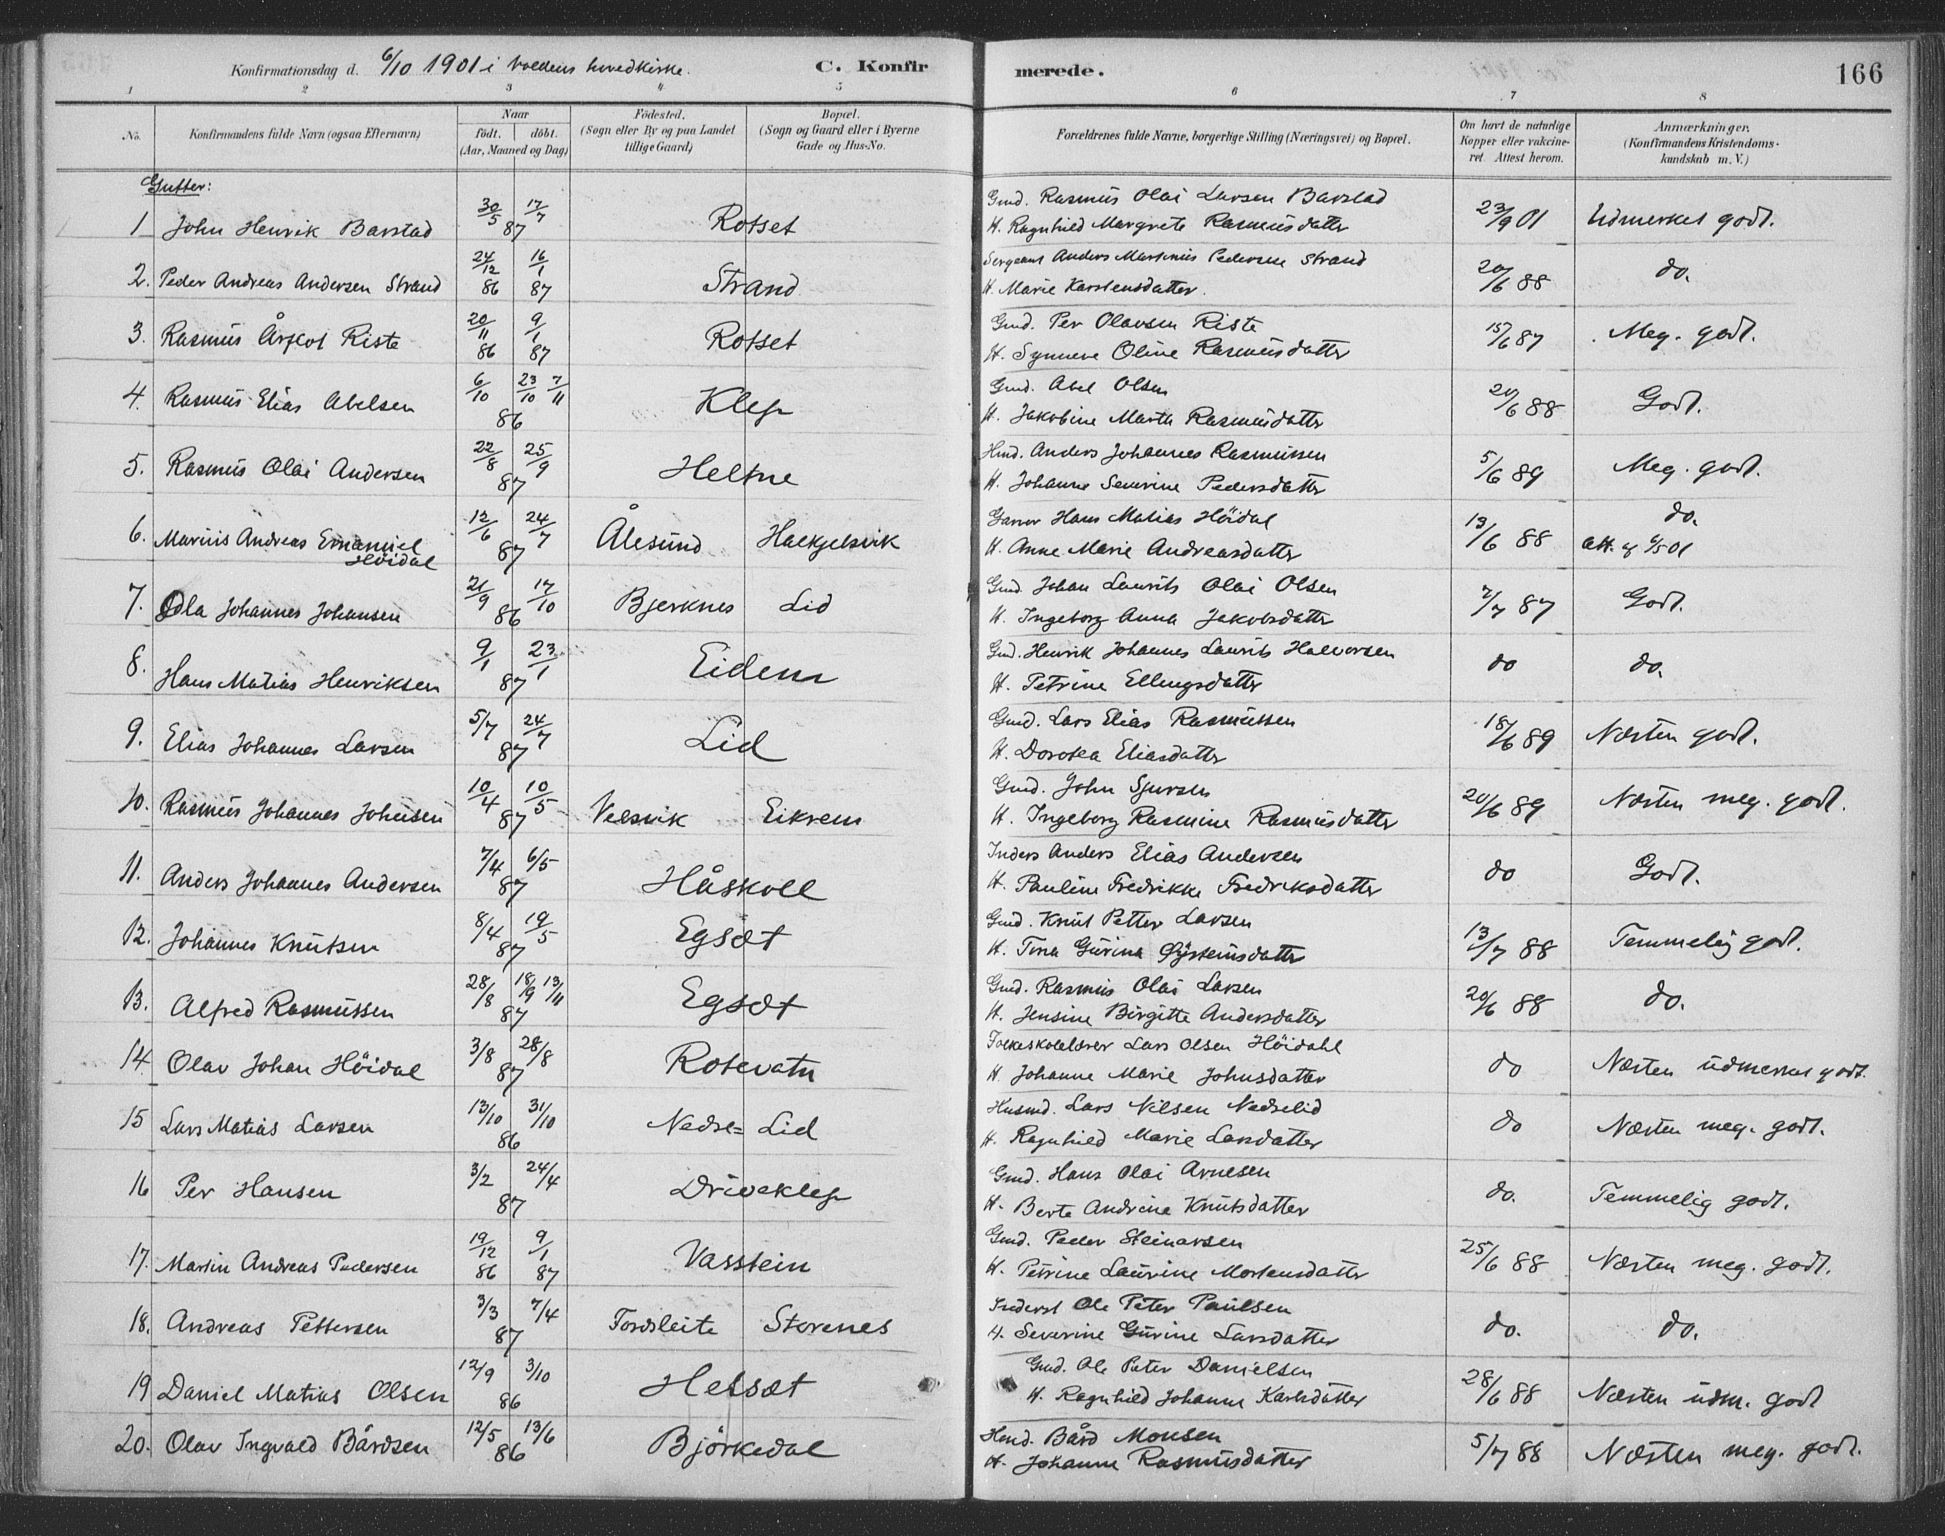 Konfirmationsdag d. 6/10 1901 i Voldens hovedkirke. C. Konfirmerede. 166
1 2 3 4 5 6 7 8
No. Konfirmandens fulde Navn (ogsaa Efternavn) Naar födt. döbt. (Aar, Maaned og Dag) Födested. (Sogn eller By og paa Landet tillige Gaard) Bopæl. (Sogn og Gaard eller i Byerne Gade og Hus-No. Forældrenes fulde Navne, borgerlige Stilling (Næringsvei) og Bopæl. Om havt de naturlige Kopper eller vakcineret. Attest herom. Anmærkninger. (Konfirmandens Kristendomskundskab m. V.)
Gutter:
1 John Henrik Barstad 30/5 17/7 87 Rotset Gmd. Rasmus Olai Larsen Barstad
H. Ragnhild Margrete Rasmusdatter 23/9 01 Udmerket godt.
2. Peder Andreas Andersen Strand 24/12 86 16/1 87 Strand Sergeant Anders Martinus Pedersen Strand
H. Marie Karstensdatter. 20/6 88 do.
3. Rasmus Riste 20/11 86 9/1 87 Rotset Gmd. Per Olavsen Riste
H. Synneve Oline Rasmusdatter 15/6 87 Meg. godt.
4. Rasmus Elias Abelsen 6/10 23/10 7/11 86 Klep Gmd. Abel Olsen
H. Jakobine Marta Rasmusdatter 20/6 88 Godt.
5. Rasmus Olai Andersen 22/8 25/9 87 Heltne Hmd. Anders Johannes Rasmussen
H. Johanne Severine Pedersdatter 5/6 89 Meg. godt.
6. Marius Andreas Emanuel Höidal 12/6 24/7 87 Ålesund Halkjelsvik Garver Hans Matias Höidal
H. Anne Marie Andreasdatter 13/6 88 do.
att. af 6/5 01
7. Ola Johannes Johansen 21/9 17/10 86 Bjerknes Lid Gmd. Johan Laurits Olai Olsen
H. Ingeborg Anna Jakobsdatter 7/7 87 Godt.
8. Hans Matias Henriksen 9/1 23/1 87 Eidem Gmd. Henrik Johannes Laurits Halvorsen
H. Petrine Ellingsdatter do do.
9. Elias Johannes Larsen 5/7 24/7 87 Lid Gmd. Lars Elias Rasmussen
H. Dorotea Eliasdatter 18/6 89 Næsten godt.
10. Rasmus Johannes Johnsen 10/4 10/5 87 Velsvik Eikrem Gmd. John Sjursen
H. Ingeborg Rasmine Rasmusdatter 20/6 89 Næsten meg. godt.
11. Anders Johannes Andersen 7/4 6/5 87 Håskoll Inders Anders Elias Andersen
H. Pauline Fredrikke Fredriksdatter do Godt.
12. Johannes Knutsen 8/4 19/5 87 Egsæt Gmd. Knut Petter Larsen
H. Tina Gurina Øysteinsdatter 13/7 88 Temmelig godt.
13. Alfred Rasmussen 28/8 18/9 13/11 87 Egsæt Gmd. Rasmus Olai Larsen
H. Jensine Birgitte Andersdatter 20/6 88 do.
14. Olav Johan Höidal 3/8 28/8 87 Rotevatn Folkeskolelærer Lars Olsen Höidahl
H. Johanne Marie Johnsdatter do Næsten udmerket godt.
15 Lars Matias Larsen 13/10 31/10 86 Nedre= Lid Husmd. Lars Nilsen Nedrelid
H. Ragnhild Marie Larsdatter do Næsten meg. godt.
16 Per Hansen 3/2 24/4 87 Driveklep Gmd. Hans Olai Arnesen
H. Berte Andrine Knutsdatter do. Temmelig godt.
17. Martin Andreas Pedersen 19/12 86 9/1 87 Vasstein Gmd. Peder Steinarsen
H. Petrine Laurine Mortensdatter 25/6 88 Næsten meg. godt.
18. Andreas Pettersen 3/3 7/4 87 Fordsleite Storenes Inderst Ole Peter Paulsen
H. Severine Gurine Larsdatter do. do.
19 Daniel Matias Olsen 12/9 3/10 86 Helsæt Gmd. Ole Peter Danielsen
H. Ragnhild Johanne Karlsdatter 28/6 88 Næsten udm. godt
20. Olav Ingvald Bårdsen 12/5 13/6 86 Björkedal Hmd. Bård Monsen
H. Johanne Rasmusdatter 5/7 88 Næsten meg. godt.